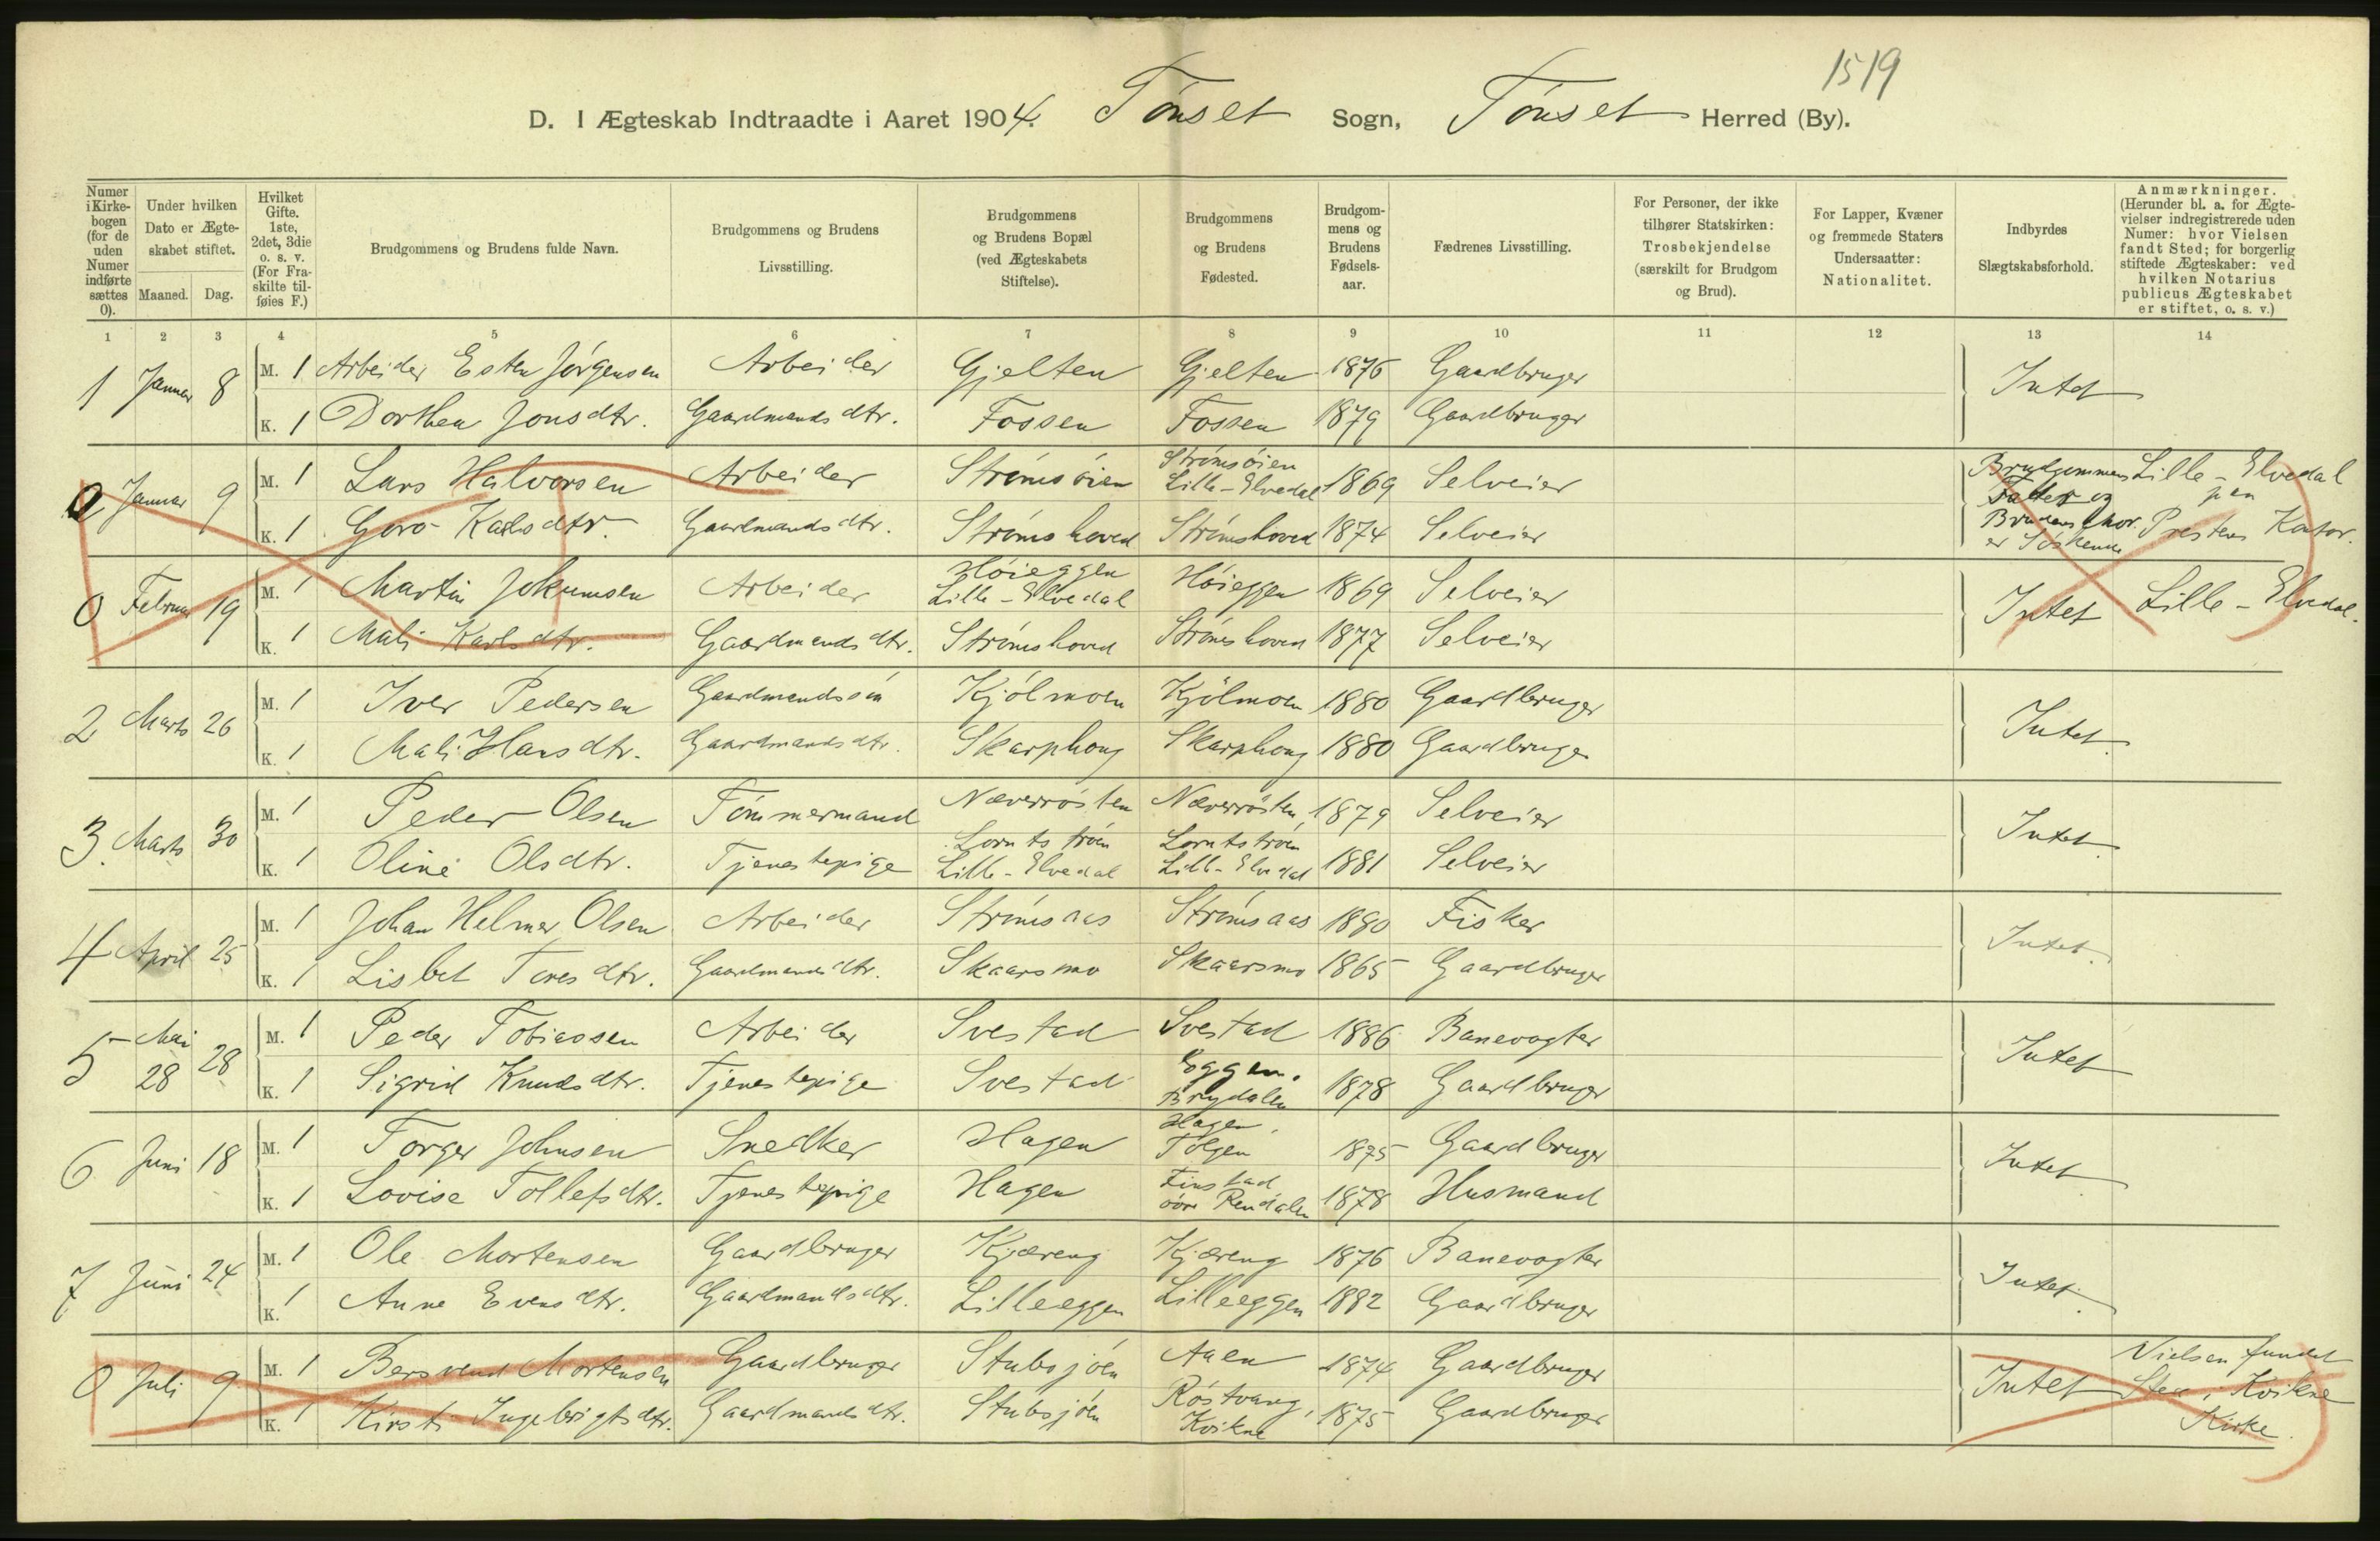 1519
D. I Ægteskab Indtraadte i Aaret 1904. Tönset Sogn, Tönset Herred (By).
Numer i Kirkebogen (for de uden Numer indførte sættes 0).
Under hvilken Dato er Ægteskabet stiftet.
Maaned. Dag.
Hvilket Gifte. 1ste, 2det, 3die o. s. v. (For Fraskilte tilføies F.)
Brudgommens og Brudens fulde Navn.
Brudgommens og Brudens Livsstilling.
Brudgommens og Brudens Bopæl (ved Ægteskabets Stiftelse).
Brudgommens og Brudens Fødested.
Brudgommens og Brudens Fødselsaar.
Fædrenes Livsstilling.
For Personer, der ikke tilhører Statskirken: Trosbekjendelse (særskilt for Brudgom og Brud).
For Lapper, Kvæner og fremmede Staters Undersaatter: Nationalitet.
Indbyrdes Slægtskabsforhold.
Anmærkninger. (Herunder bl. a. for Ægtevielser indregistrerede uden Numer: hvor Vielsen fandt Sted; for borgerlig stiftede Ægteskaber: ved hvilken Notarius publicus Ægteskabet er stiftet, o. s. v.)
1 2 3 4 5 6 7 8 9 10 11 12 13 14
1 Januar 8 M. 1 Arbeider Esten Jörgensen Arbeider Gjelten Gjelten 1876 Gaardbruger Intet
K. 1 Dorthea Jonsdtr. Gaardmandsdtr. Fossen Fossen 1879 Gaardbruger
0 Januar 9 M. 1 Lars Halvorsen Arbeider Strömsöien Strömsöien Lille-Elvedal 1869 Selveier Brudgommens Fader og Brudens Mor. er Söskende Lille-Elvedal paa Prestens Kontor.
K. 1 Goro Karlsdtr. Gaardmandsdtr. Strömshoved Strömshoved 1874 Selveier
0 Februar 19 M. 1 Martin Jokumsen Arbeider Höieggen Lille-Elvedal Höieggen 1869 Selveier Intet Lille-Elvedal.
K. 1 Mali Karlsdtr. Gaardmandsdtr. Strömshoved Strömshoved 1877 Selveier
2 Marts 26 M. 1 Iver Pedersen Gaardmandssön Kjölmoen Kjölmoen 1880 Gaardbruger Intet.
K. 1 Mali Hansdtr. Gaardmandsdtr. Skarphoug Skarphoug 1880 Gaardbruger
3. Marts 30 M. 1 Peder Olsen Tömmermand Næverrösten Næverrösten, 1879 Selveier Intet.
K. 1 Oline Olsdtr. Tjenestepige Lorntströen Lille-Elvedal Lorntströen Lille-Elvedal 1881 Selveier
4 April 25 M. 1 Johan Helmer Olsen Arbeider Strömsaas Strömsaas 1880 Fisker Intet.
K. 1 Lisbet Toresdtr. Gaardmandsdtr. Skaarsmo Skaarsmo 1865 Gaardbruger
5 Mai 28 28 M. 1 Peder Tobiassen Arbeider Svestad Svestad 1886 Banevogter Intet
K. 1 Sigrid Knudsdtr. Tjenestepige Svestad Eggen. Brydalen 1878 Gaardbruger
6 Juni 18 M. 1 Torger Johnsen Snedker Hagen Hagen, Tolgen 1875 Gaardbruger Intet
K. 1 Lovise Tollefsdtr. Tjenestepige Hagen Finstad övre Rendalen 1878 Husmand
7 Juni 24 M. 1 Ole Mortensen Gaardbruger Kjæreng Kjæreng 1876 Banevogter Intet.
K. 1 Anne Evensdtr. Gaardmandsdtr. Lilleeggen Lilleeggen 1882 Gaardbruger
0 Juli 9 M. 1 Bersvend Mortensen Gaardbruger Stubsjöen Aaen 1874 Gaardbruger Intet Vielsen fandt Sted i Kvikne Kirke.
K. 1 Kirsti Ingebrigtsdtr. Gaardmandsdtr. Stubsjöen Röstvang, Kvikne 1875 Gaardbruger